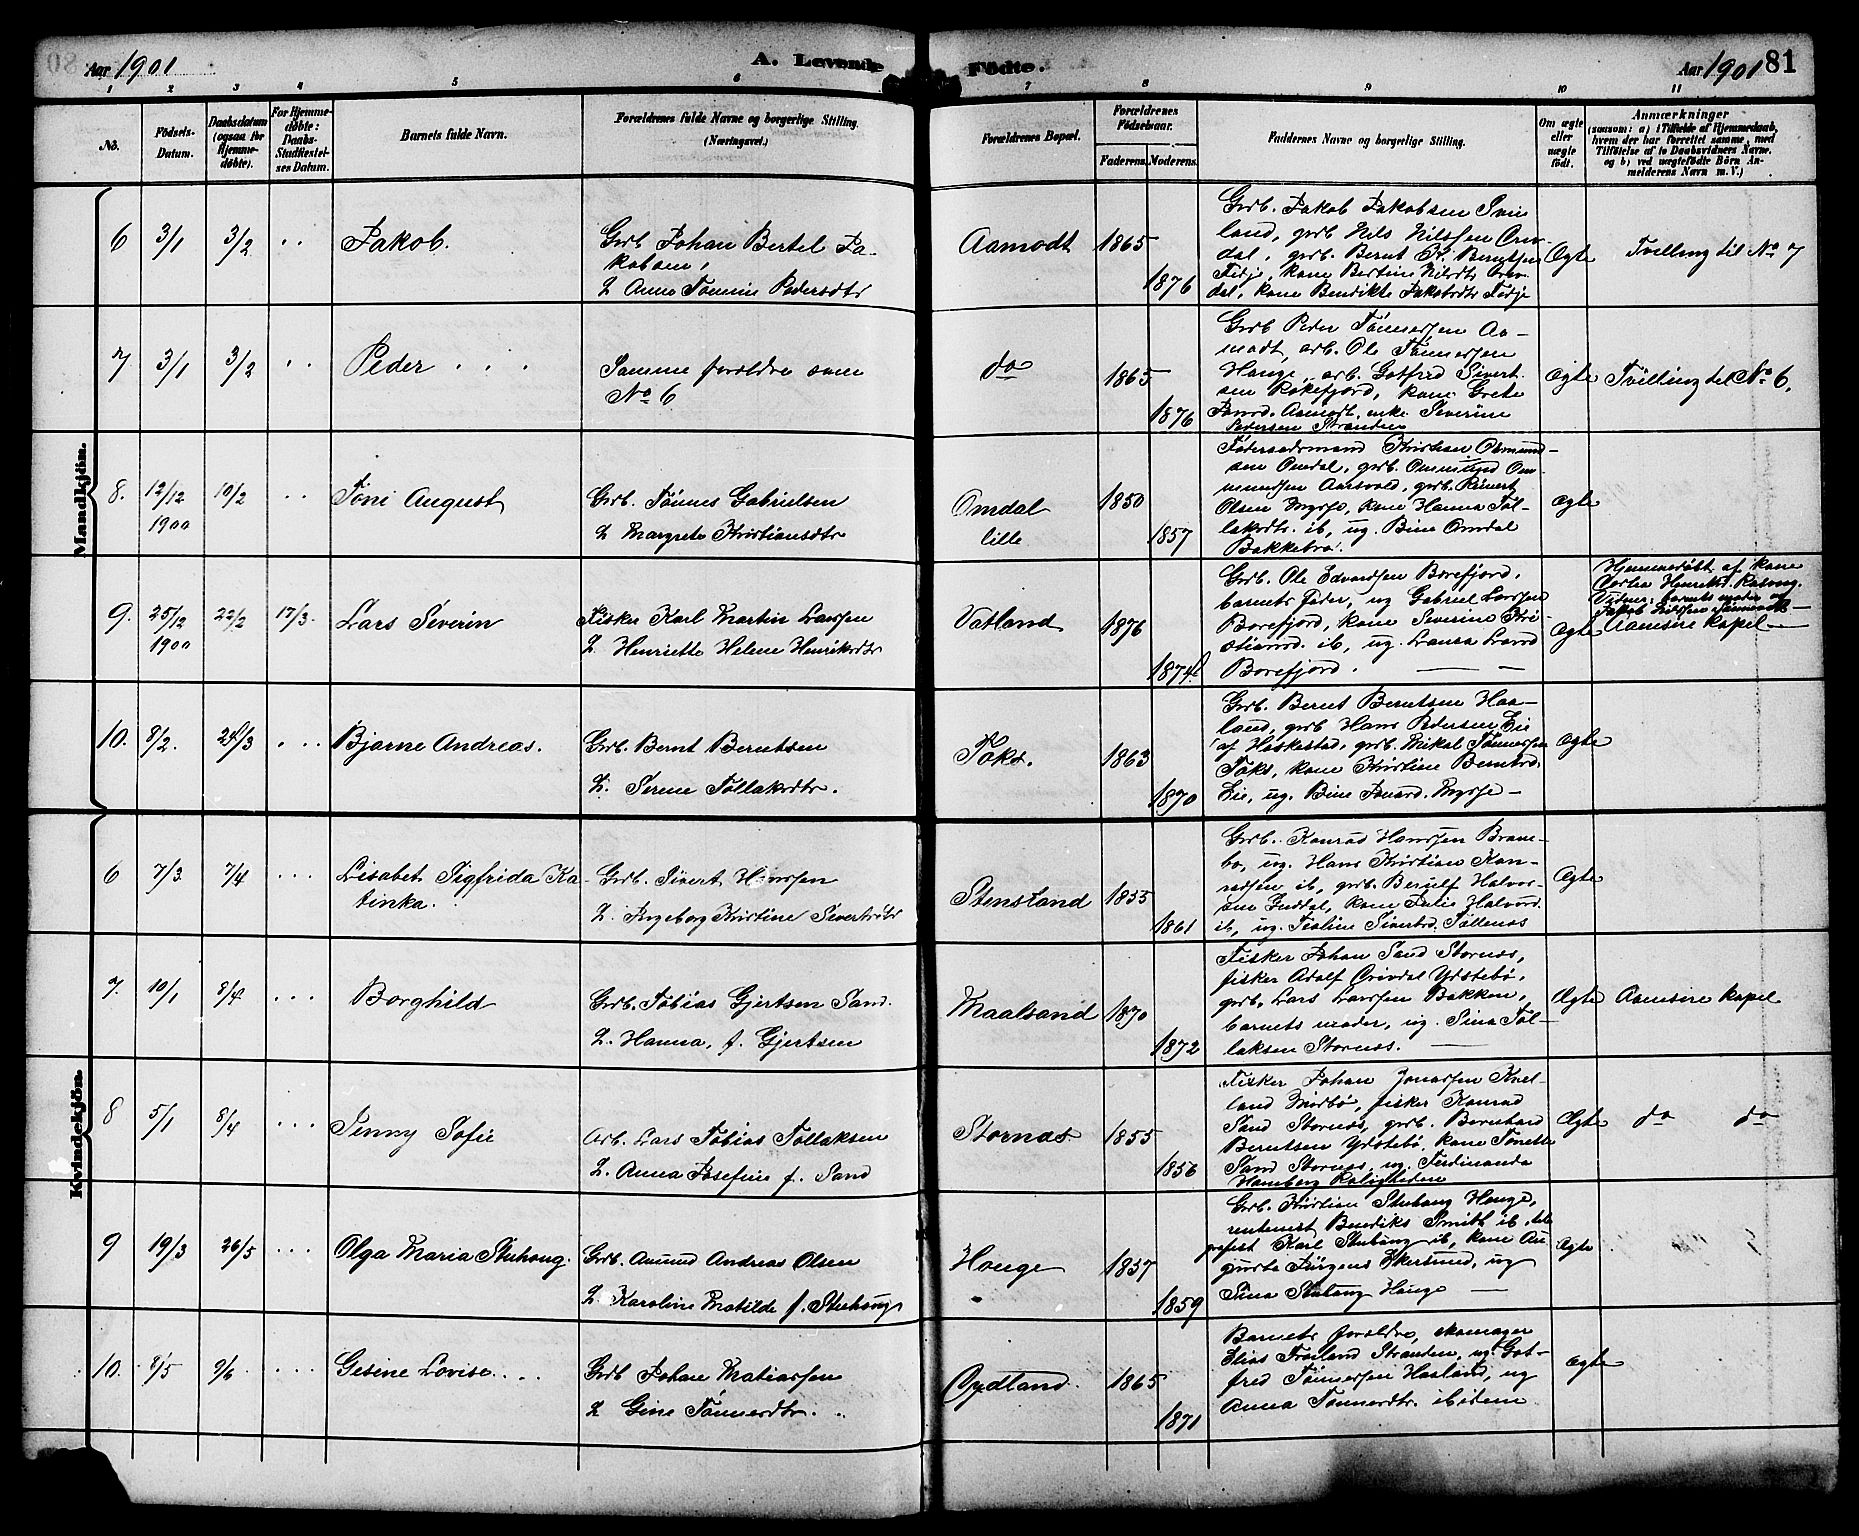 Aar 1901
A. Levende Fødte.
Aar 1901 81
1 2 3 4 5 6 7 8 9 10 11
No.
Fødsels-
Datum.
Daabsdatum
(ogsaa for
Hjemme-
døbte).
For Hjemme-
døbte:
Daabs-
Stadfæstel-
ses Datum.
Barnets fulde Navn.
Forældrenes fulde Navne og borgerlige Stilling.
(Næringsvei.)
Forældrenes Bopæl.
Forældrenes
Fødselsaar.
Faderens. Moderens.
Faddernes Navne og borgerlige Stilling.
Om ægte
eller
uægte
født.
Anmærkninger
(saasom: a) i Tilfælde af Hjemmedaab,
hvem der har forrettet samme, med
Tilføielse af to Daabsvidners Navne,
og b) ved uægtefødte Børn An-
melderens Navn m. V.)
Mandkjøn.
6 3/1 3/2 Jakob.
Grb Johan Bertel Ja-
kobsen,
& Anna Tomine Pedersdtr
Aamodt 1865
1876
Grb. Jakob Jakobsen Svin
land, grb Nils Nilssen
dal, grb. Bernt Berntsen
Tedje, kone Bertine
dal, kone Bendikte Jakobsdtr Tedje
Ægte Tvilling til No 7
7 3/1 3/2 Peder
Samme forældre som
No 6
do 1865
1876
Grb Peder Tønnesen Aa-
modt, arb. Ole Tønnessen
Hauge, arb. Gotfred Sivert-
sen Rekefjord, kone Grete
Aamodt, enke Severine
Pedersen Stranden
ægte Tvilling til No 6.
8. 12/12 10/2 Toni August
1900
Grb. Tønnes Gabrielsen
& Margrete Kristiansdtr
Omdal
lille
1850
1857
Føderaadsmand Kristian Osmund-
sen Omdal, grb. Ommund Om-
mundsen Aarsvold, grb. Sivert
Olsen Mysse, kone Hanna Tol-
laksdtr. ib, ug. Bine Omdal
Bakkebø.
ægte
9. 25/12 22/2 17/3. Lars Severin
1900
Fisker Karl Martin Larssen
& Henriette Helene Henriksdtr
Vatland 1876
1874
Grb. Ole Edvardsen Borefjord,
barnets fader, ug Gabriel Larssen
Borefjord, kone Severine Kri-
stiansd. ib, ug. Laura Lavrd
Borefjord.
Ægte
Hjemmedøbt af kone
Henriksd. Rasvag.
Vidner: barnets moder og
Jakob Nilssen
Aamsire kapel
10. 8/2. 24/3 Bjarne Andreas.
Grb. Bernt Berntsen
& Serine Tollaksdtr.
Toks. 1863
1870
Grb. Bernt Berntsen Haa-
land, grb Hans Pedersen Eie
af Heskestad, grb. Mikal Tønnessen
Toks, kone Kristine Berntsd.
Eie, ug. Bine Mysse
ægte
Kvindekjøn.
6 7/3 7/4 Lisabet Sigfrida Ka-
tinka.
Grb. Sivert Hanssen
& Ingeborg Kristine Sivertsdtr
Stensland 1855
1861
Grb. Konrad Hanssen Bram-
bo, ug. Hans Kristian Kon-
radsen ib, grb. Berulf Halvor-
sen Guddal, kone Julie Halvorsd.
ib, ug. Teoline Sivertsd. Tollenes
Ægte
7. 10/1 8/4 Borghild
Grb. Tobias Gjertsen Sand.
& Hanna, f. Gjertsen
Maalsand 1870
1872
Fisker Johan Sand Stornæs,
fisker Adolf Omdal Ydstebø,
grb. Lars Larssen Bakken,
barnets moder, ug. Sina Tol-
laksen Stornæs.
Ægte Aamsire kapel
8 5/1 8/4 Jenny Sofie
Arb. Lars Tobias Tollaksen
& Anna Josefine f. Sand
Stornæs 1855
1856
Fisker Johan Jonassen Kvel-
land Midbø, fisker Konrad
Sand Stornæs, grb. Bernhard
Berntsen Ydstebø, kone Tonette
Sand Stornæs, ug. Ferdinanda
Hamberg Roligheden
Ægte do do
9 19/3 26/5 Olga Maria Stuhaug.
Grb. Amund Andreas Olsen
& Karoline Matilde f. Stuhaug
Hauge 1857
1859
Grb. Kristian Stuhaug Hauge,
rentenist Bendiks Smith ib, tele
grafist Karl Stuhaug ib, kone Au-
gusta Jørgens Ekersund, ug
Sina Stuhaug Hauge
Ægte
10. 8/5 9/6 Gesine Lovise
Grb Johan Matiassen
& Gine Tønnesdtr.
Øydland. 1865
1871
Barnets forældre, skomager
Elias Frøiland Stranden, ug Got-
fred Tønnessen Haaland, ug
Anna Tønnesdtr. ibidem
ægte